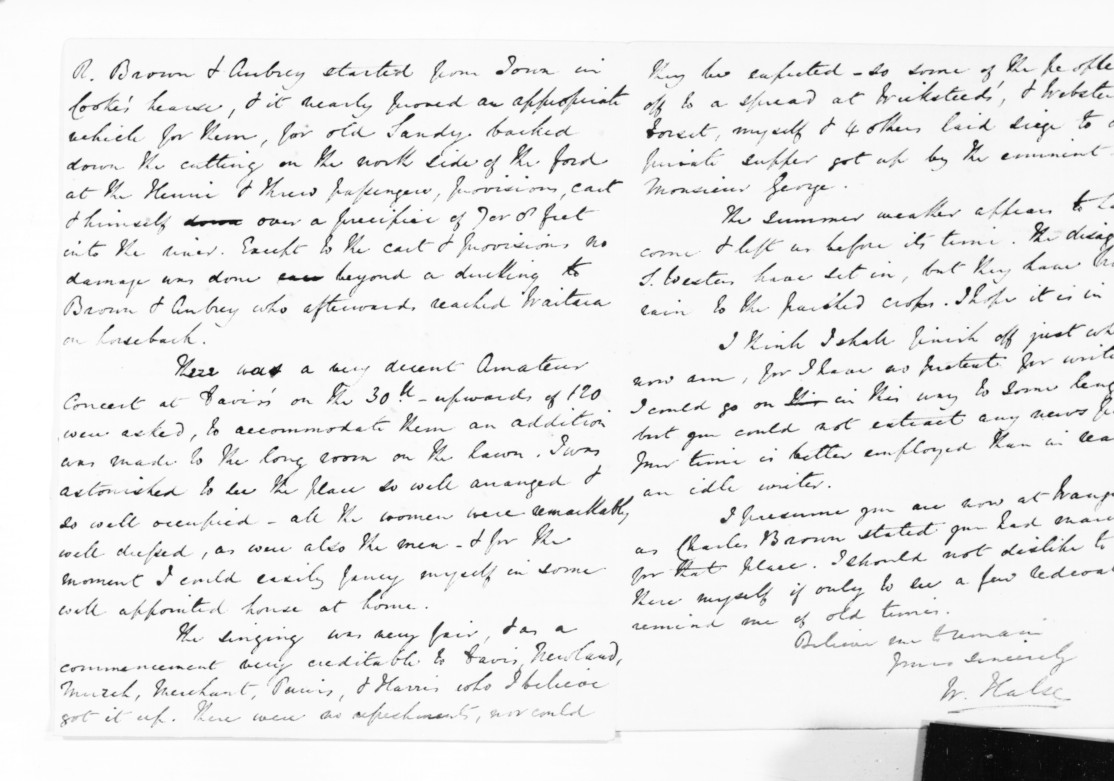 R. Brown & Aubrey started from Town in
Cooke's hearse, & it nearly proved an appropriate
vehicle for them, for old Sandy backed
down the cutting on the north side of the ford
at the Henui & threw passengers, provisions, cart
& himself down over a precipice of 7 or 8 feet
into the river. Except to the cart & provisions no
damage was done beyond a ducking to
Brown & Aubrey who afterwards reached Waitara
on horseback.
There was a very decent Amateur
Concert at Davis's on the 30th - upwards of 120
were asked, to accommodate them an addition
was made to the long room on the lawn. I was
astonished to see the place so well arranged &
so well occupied - all the women were remarkably
well dressed, as were also the men - & for the
moment I could easily fancy myself in some
well appointed house at home.
The singing was very fair, & as a
commencement very creditable to Davis, Newland,
Merchant, & Harris who I believe
got it up. There were no refreshments, nor could
they be expected - so some of the people
off to a spread at Wicksteed's, & Webster
Dorset, myself & 4 others laid siege to a
private supper got up by the eminent
Monsieur George.
The summer weather appears to
come & left us before its time. The
S. Westers have set in, but they have
rain to the parched crops. I hope it is in
I think I shall finish off just
now am, for I have no pretext for
I could go on in this way to some
but you could not extract any news
your time is better employed than in
an idle writer.
I presume you are now at
as Charles Brown stated you had
for that place. I should not dislike to
there myself if only to see a few
remind me of old times.
Believe me to remain
Yours sincerely
W. Halse